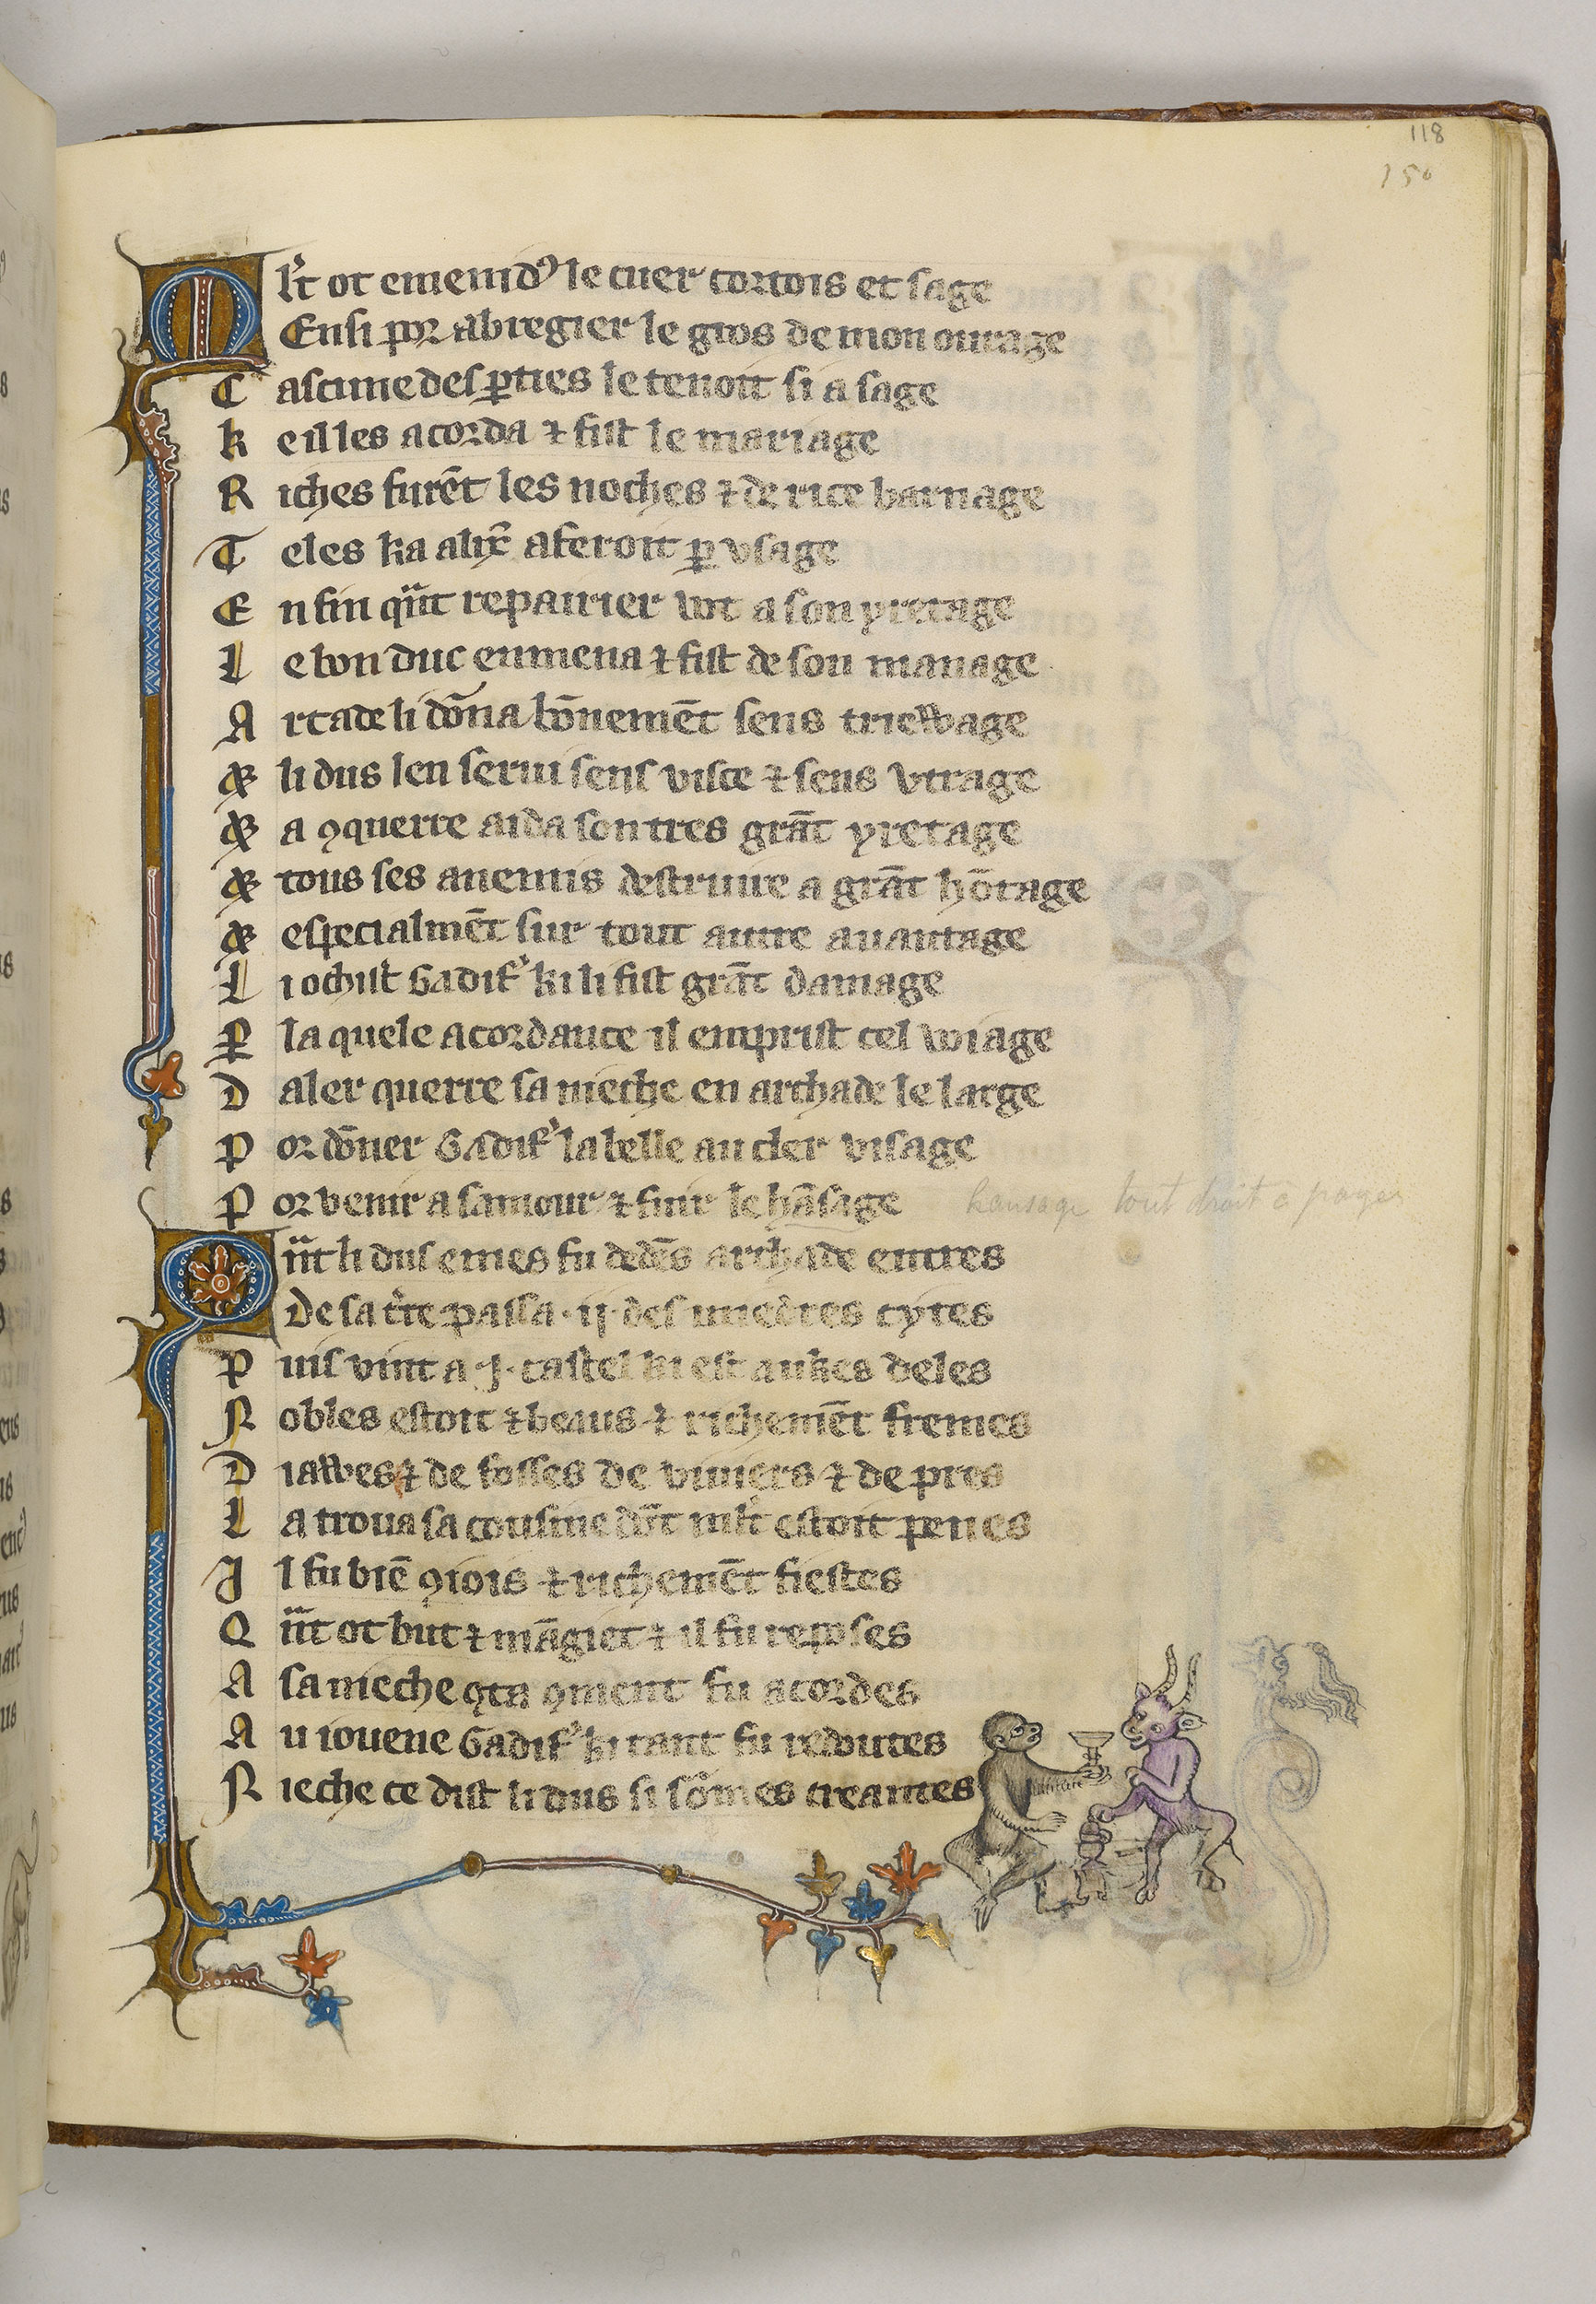 118
150
Ml't ot emenid' le cuer cortois et sage
Ensi por abregier le gros de mon ourage
Cascune des p̱ties le tenoit si a sage
K eilles acorda ⁊ fist le mariage
R iches furēt les noches ⁊ de rice barnage
T eles ka alix̄ aferoit p̱ vsage
E n fin qu̇̃t repairier vot a son yretage
L e bon duc enmena ⁊ fist de son manage
A rcade li dōna bōnemēt sens triewage
⁊ li dus len serui sens visce ⁊ sens vtrage
⁊ a ꝯquerre aida son tres grāt yretage
⁊ tous ses anemis destruire a grāt hōtage
⁊ especialmēt sur tout autre auantage
L i ochist Gadif' ki li fist grāt damage
P̱ la quele acordance il emprist cel voiage
D aler querre sa nieche en archade le large
P or dōner Gadif' la belle au cler visage
P or venir a samour ⁊ finir le hāsage hausage tout droit à payer
Qu̇̃t li dus emes fu dedēs archade entres
De sa t're passa .ij. des miedres cytes
P uis vint a .j. castel ki est aukes deles
N obles estoit ⁊ beaus ⁊ richemēt fremes
D iawes ⁊ de fosses de viuiers ⁊ de pres
L a troua sa cousine dūt ml't estoit penes
I l fu biē ꝯiois ⁊ richemēt fiestes
Q u̇̃t ot but ⁊ māgiet ⁊ il fu reposes
A sa nieche ꝯta ꝯment fu acordes
A u iouene Gadif' ki tant fu redoutes
N ieche ce dist li dus si sōmes creantes